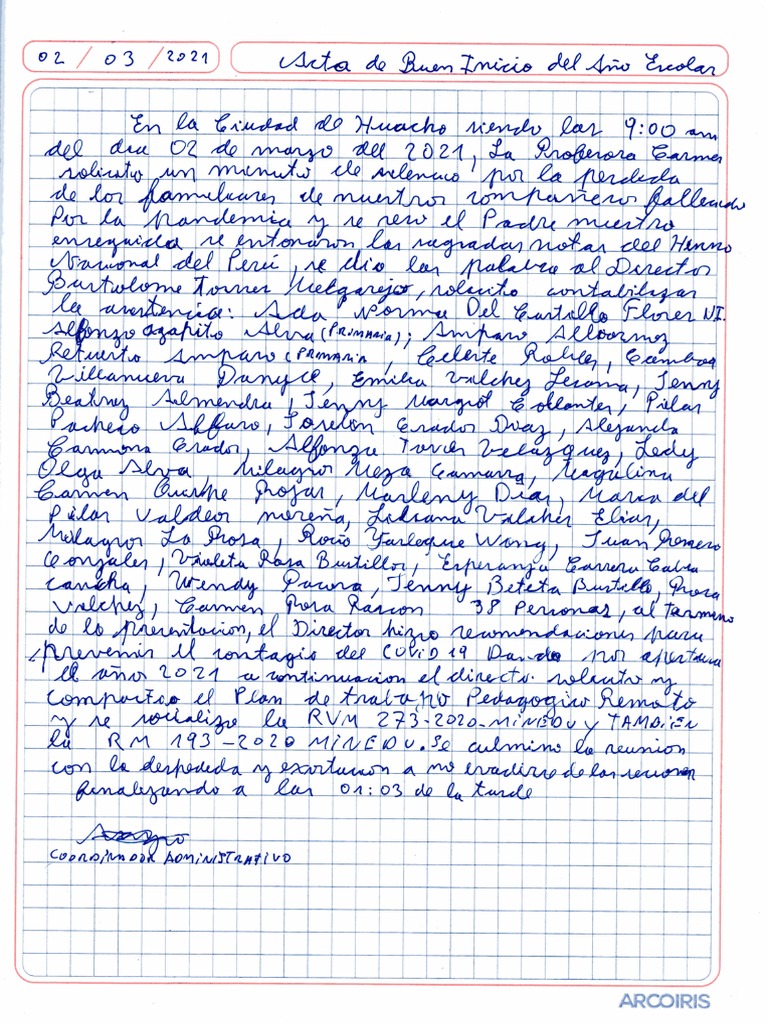 02 / 03 / 2021 Acta de Buen Inicio del Año Escolar
En la Ciudad de Huacho siendo las 9:00 am
del dia 02 de marzo del 2021, La Profesora Carmen
solicito un minuto de silencio por la perdida
de los familiares de nuestros compañeros fallecido
Por la pandemia y se reso el Padre nuestro
enseguida se entonaron las sagradas notas del Himno
Nacional del Perú, se dio las palabra al Director
Bartolome Torres Melgarejo, solicito contabilizar
la asistencia: Ada Norma Del Castillo Flores NI.
Alfonzo agapito Alva (PRIMARIA); Amparo Albornoz
Retuerto Amparo (PRIMARIA, Celeste Robles, Gamboa
Villanueva Danyce, Emilia Valchez Lezama, Jenny
Beatriz Almendra, Jenny Margot Collantes, Pilar
Pacheco Alfaro, Joselyn Crados Diaz, Alejanda
Carmona Crados, Alfonzo Tavio Velazquez, Ledy
Olga Alva Milagro Meza Camarra, Magalina
Carmen Quispe Rojas, Marleny Dias, Maria del
Pilar Valdeor moreña, Liliana Valchez Elias,
Milagros La Rosa, Rocio Yarleque Wong, Juan Romero
Gonzales, Violeta Rosa Bustillos, Esperanza Carrera Cabia
cancha, Wendy Pacora, Jenny Beteta Bustillo, Rosa
Valchez, Carmen Rosa Rascon 38 Personas, al Termino
de la presentacion, el Director hizo recomendaciones para
prevenir el contagio del COVID 19 Dando por apertura
el año 2021 a continuacion el director solicito y
compartio el Plan de trabajo Pedagogico Remoto
y se socializo la RVM 273-2020-MINEDU y TAMBIEN
la RM 193-2020 MINEDU. se culmino la reunion
con la despedida y exortacion a no evadirse de las
finalizando a las 01:03 de la tarde
COORDINADOR ADMINISTRATIVO
ARCOIRIS